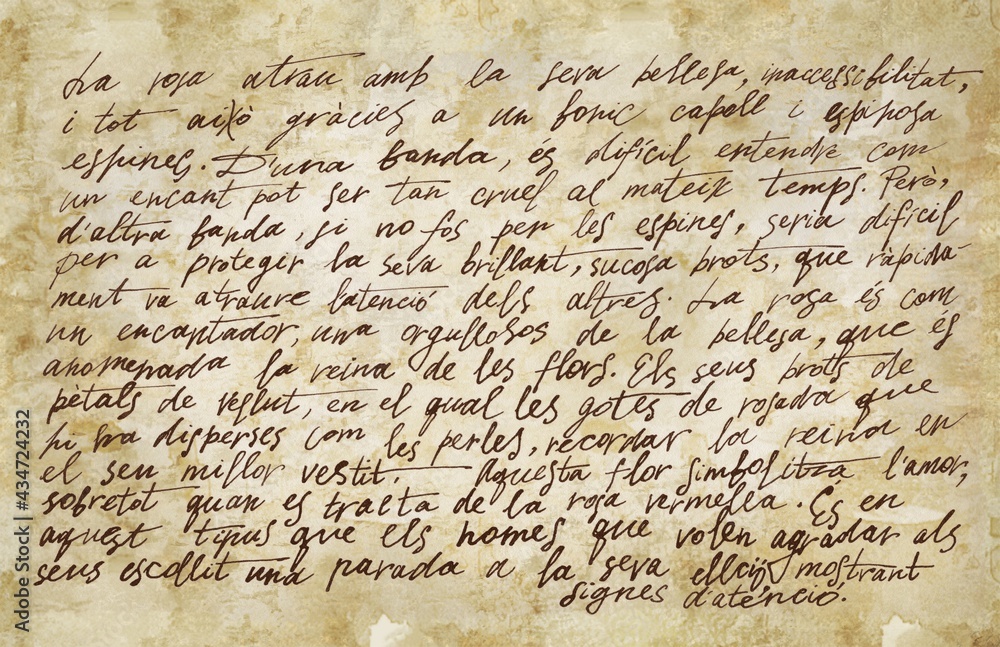 La rosa atrau amb la seva bellesa, inaccessibilitat,
i tot això gràcies a un bonic capell i espinosa
espines. D'una banda, és difícil entendre com
un encant pot ser tan cruel al mateix temps. Però,
d'altra banda, si no fos per les espines, seria difícil
per a protegir la seva brillant, sucosa brots, que ràpida-
ment va atraure l'atenció dels altres. La rosa és com
un encantador, una orgullosos de la bellesa, que és
anomenada la reina de les flors. Els seus brots de
pètals de vellut, en el qual les gotes de rosada que
hi ha disperses com les perles, recordar la reina en
el seu millor vestit. Aquesta flor simbolitza l'amor,
sobretot quan es tracta de la rosa vermella. És en
aquest tipus que els homes que volen agradar als
seus escollit una parada a la seva mostrant
signes d'atenció.
Adobe Stock | #434724232